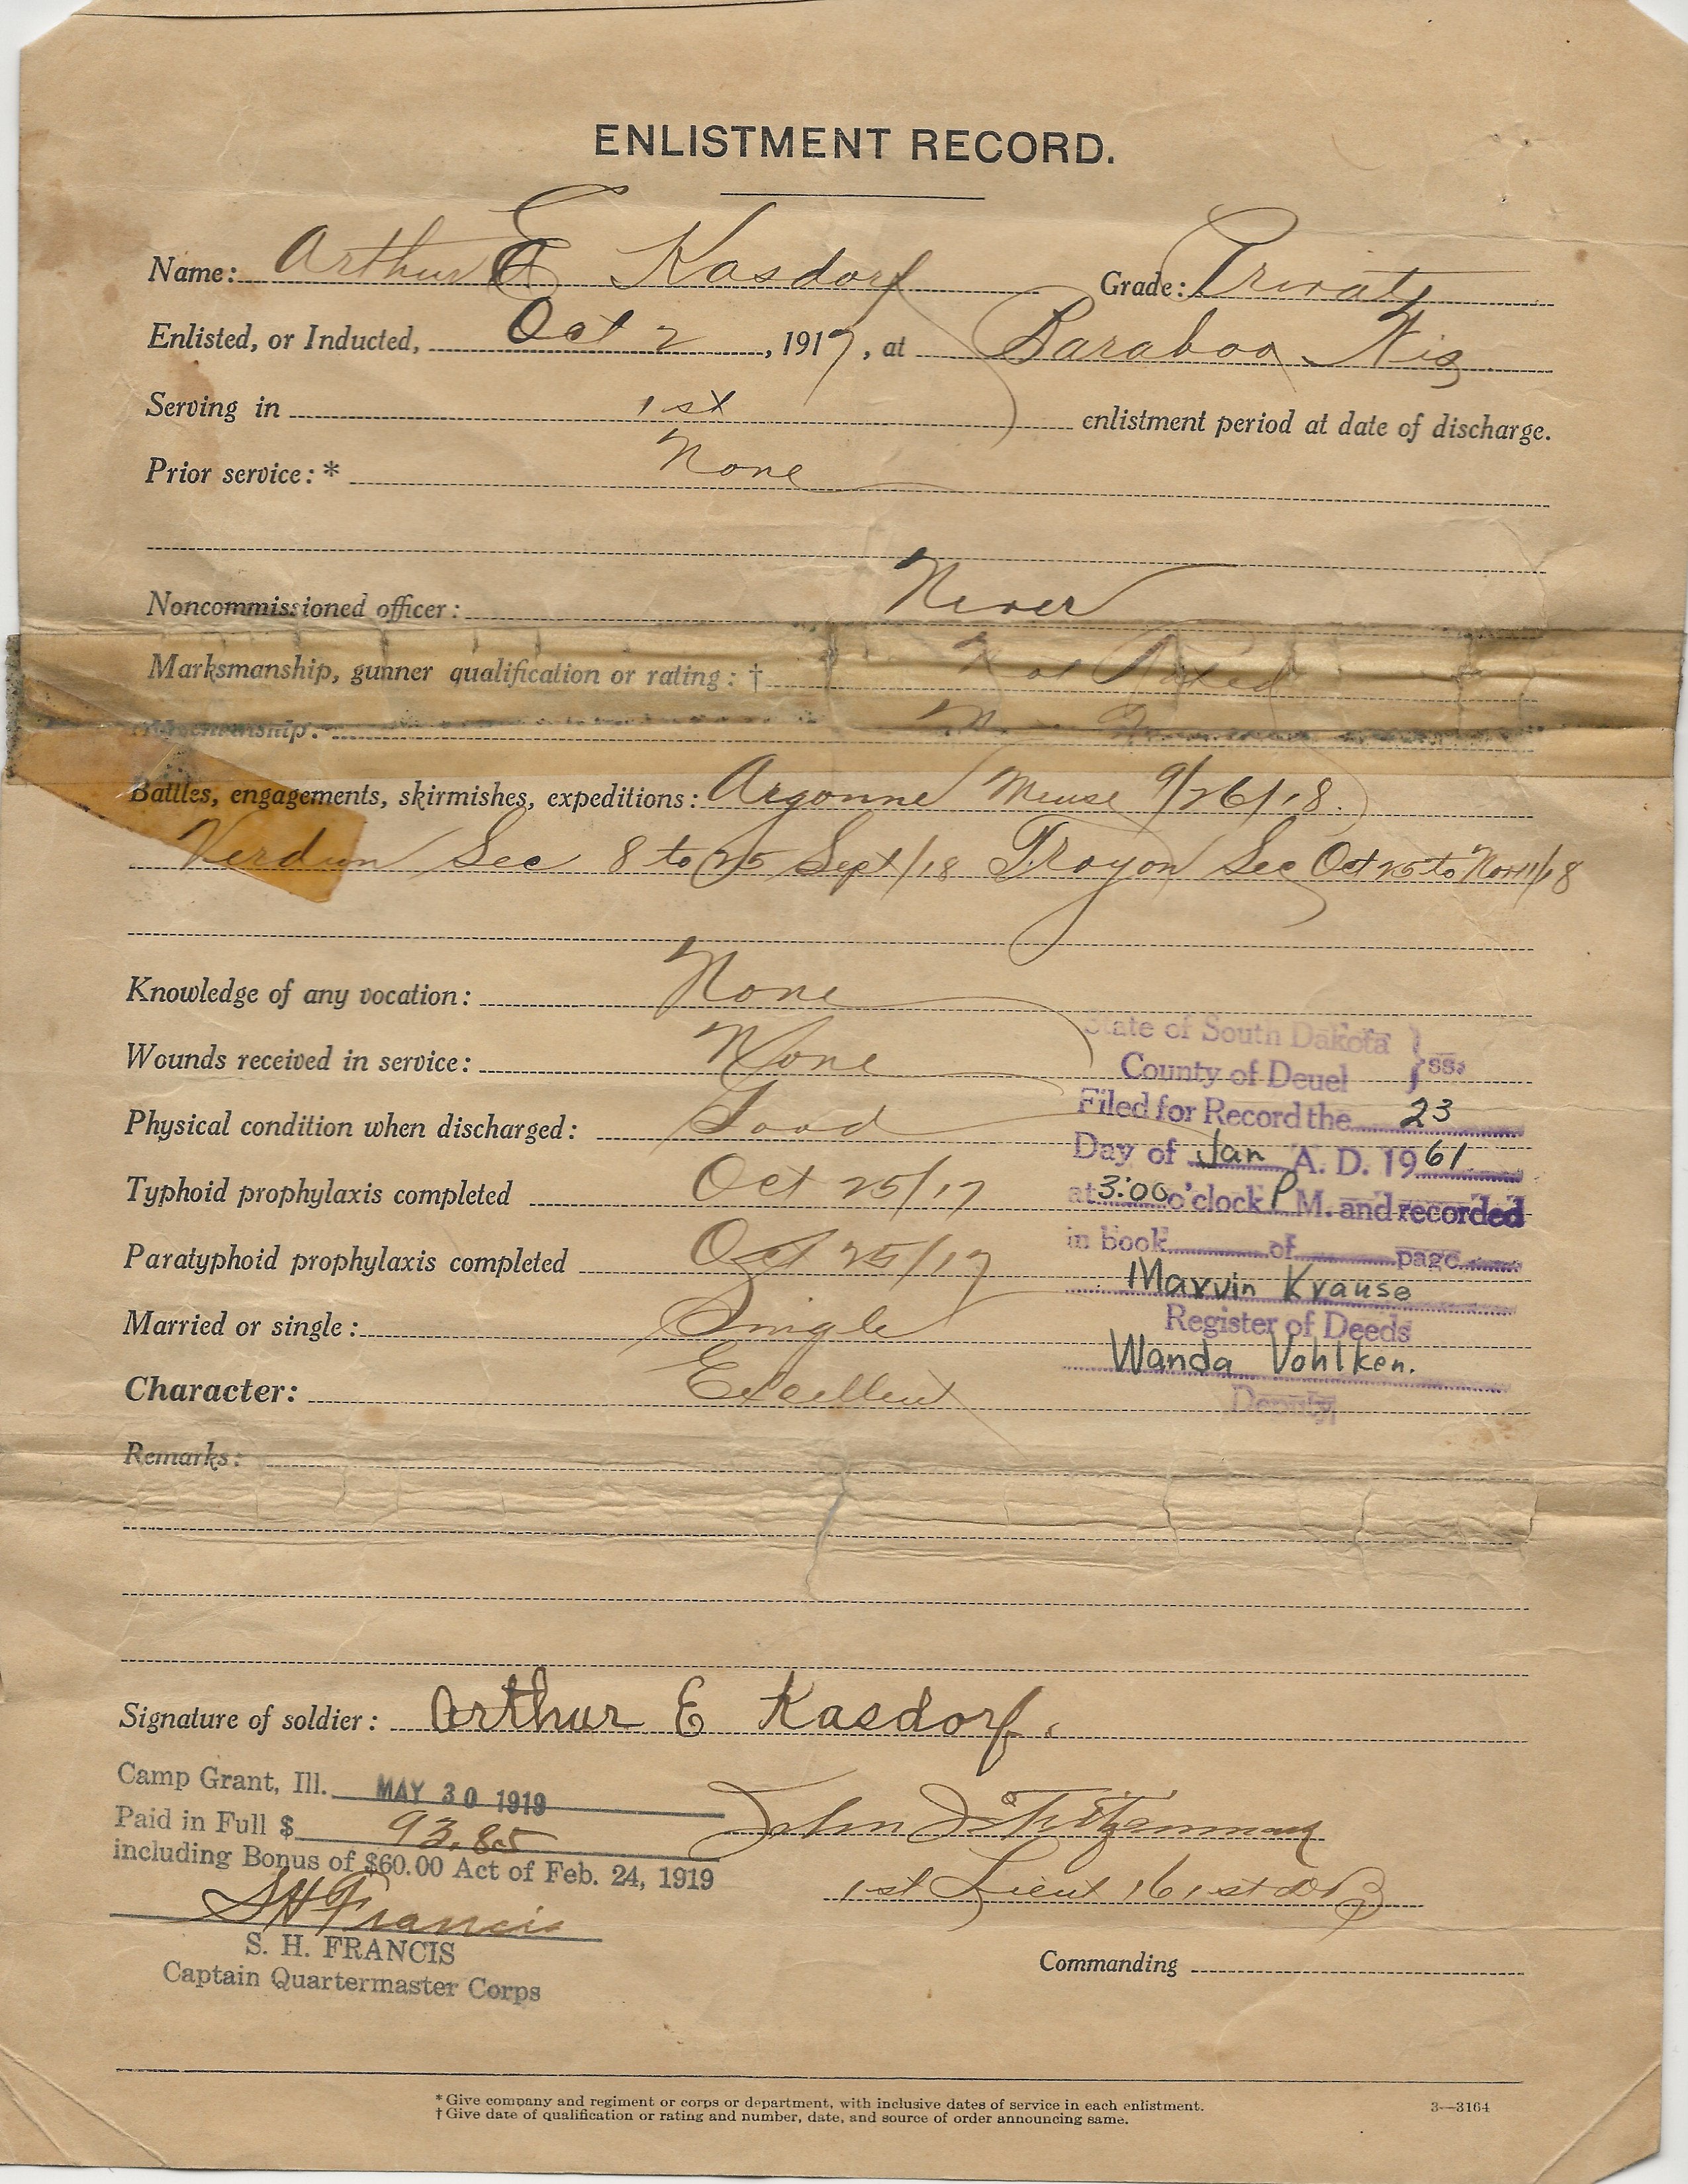 ENLISTMENT RECORD.
Name: Arthur E Kasdorf Grade: Private
Enlisted, or Inducted, Oct 2, 1917, at Baraboo Wis
Serving in 1st enlistment period at date of discharge.
Prior service: * None
Noncommissioned officer: Never
Marksmanship, gunner qualification or rating: † Not Rated
Battles, engagements, skirmishes, expeditions: Argonne Meuse 9/26/18.
Verdun Sec 8 to 25 Sept/18 Troyon Sec Oct 25 to Nov 11/18
Knowledge of any vocation: None
Wounds received in service: None
Physical condition when discharged: Good
Typhoid prophylaxis completed Oct 25/17
Paratyphoid prophylaxis completed Oct 25/17
Married or single: Single
Character: Excellent
Remarks:
State of South Dakota } ss.
County of Deuel
Filed for Record the 23
Day of Jan A. D. 1961
at 3:00 o'clock P M. and recorded
in book of page
Marvin Krause
Register of Deeds
Wanda Vohlken.
Deputy
Signature of soldier: Arthur E Kasdorf.
Camp Grant, Ill. MAY 30 1919
Paid in Full $ 93.85
including Bonus of $60.00 Act of Feb. 24, 1919
S H Francis
S. H. FRANCIS
Captain Quartermaster Corps
John
1st Lieut 161st DB
Commanding
* Give company and regiment or corps or department, with inclusive dates of service in each enlistment.
† Give date of qualification or rating and number, date, and source of order announcing same.
3—3164